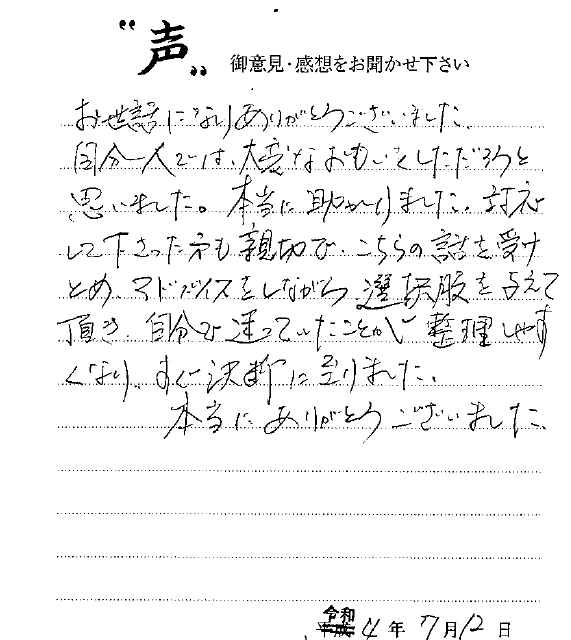 “声„ 御意見・感想をお聞かせ下さい
お世話になりありがとうございました。
自分一人では、大変なおもいをしただろうと
思いました。本当に助かりました。対応
して下さった方も親切で、こちらの話を受け
とめ、アドバイスをしながら選択肢を与えて
頂き、自分で迷っていたことが整理しやす
くなり、すぐ決断に至りました。
本当にありがとうございました。
令和
平成 4年 7月12日